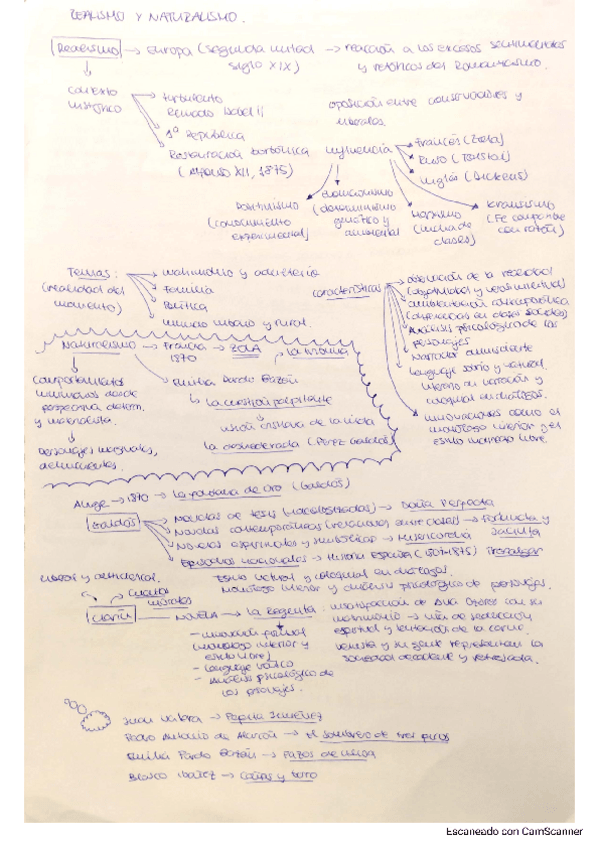 REALISMO Y NATURALISMO.
Realismo → Europa (segunda mitad siglo XIX) → reacción a los excesos sentimentales y retóricos del Romanticismo.
contexto histórico
turbulento Reinado Isabel II
1ª República
Restauración borbónica (Alfonso XII, 1875)
oposición entre conservadores y liberales
influencia
Francés (Zola)
Ruso (Tolstoi)
Inglés (Dickens)
Positivismo (conocimiento experimental)
Evolucionismo (determinismo genético y ambiental)
Marxismo (lucha de clases)
Krausismo (Fe compatible con razón)
Temas: (realidad del momento)
matrimonio y adulterio
Familia
Política
mundo urbano y rural.
características
observación de la realidad (objetividad y verosimilitud)
ambientación contemporánea (diferencias en clases sociales)
Análisis psicológico de los personajes
Narrador omnisciente
Lenguaje sobrio y natural.
en narración y coloquial en diálogos.
innovaciones como el monólogo interior y el estilo indirecto libre
Naturalismo → Francia 1870 → ZOLA
comportamientos humanos desde perspectiva determ. y materialista.
personajes marginales, delincuentes.
Emilia Pardo Bazán
La cuestión palpitante
visión cristiana de la vida
La desheredada (Pérez Galdós)
Auge → 1870 → La Fontana de oro (Galdós)
Galdós
Novelas de tesis → Doña Perfecta
Novelas contemporáneas (relaciones entre clases) → Fortunata y Jacinta
Novelas espirituales y simbólicas → Misericordia
Episodios nacionales → Historia España (1807-1875) Trafalgar
Estilo natural y coloquial en diálogos.
Monólogo interior y análisis psicológico de personajes.
Clarín
Cuentos morales
NOVELA → La Regenta: de Ana Ozores con su matrimonio →
espiritual y tentación de la carne.
Vetusta y su gente representan la sociedad decadente y retrasada.
(monólogo interior y estilo libre)
- Lenguaje
- Análisis psicológico de los personajes.
Juan Valera → Pepita Jiménez
Pedro Antonio de Alarcón → El sombrero de tres picos
Emilia Pardo Bazán → Pazos de Ulloa
Blasco Ibáñez → Cañas y barro
Escaneado con CamScanner